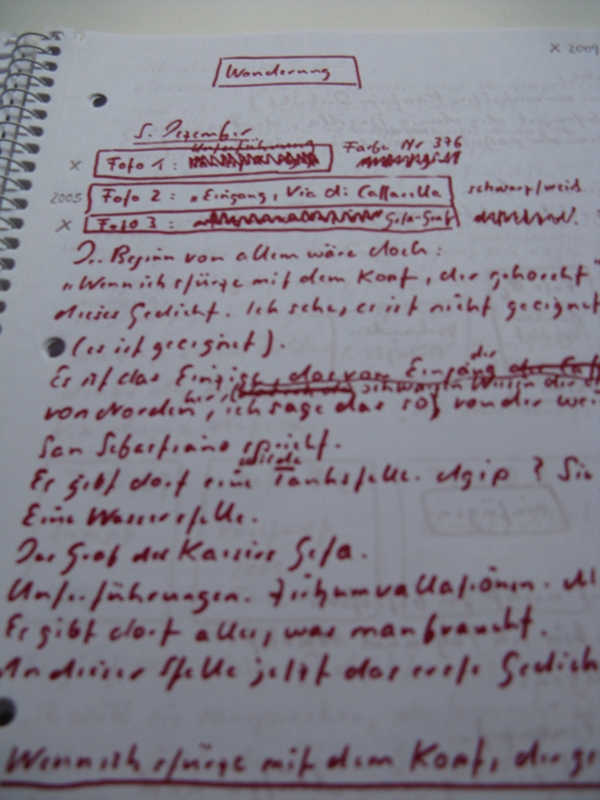 Wanderung
X 2009
5. Dezember
Unterführung
X Foto 1: Farbe Nr 376
2005 Foto 2: „Eingang, Via di Caffarella schwarz/weiß
X Foto 3: Geta-Grab
Beginn von allem wäre doch:
„Wenn ich stürze mit dem Kopf, der gehorcht"
dieses Gedicht. Ich sehe, es ist nicht geeignet
(es ist geeignet).
Es ist das Einzige, das vom Eingang der
von Norden, ich sage das so, von der
San Sebastiano spricht.
wieder
Es gibt dort eine Tankstelle. Agip? Sie
Eine Wasserstelle.
Das Grab des Kaisers Geta.
Unterführungen. Zirkumvallationen.
Es gibt dort alles, was man braucht.
An dieser Stelle jetzt das erste Gedich
Wenn ich stürze mit dem Kopf, der ge